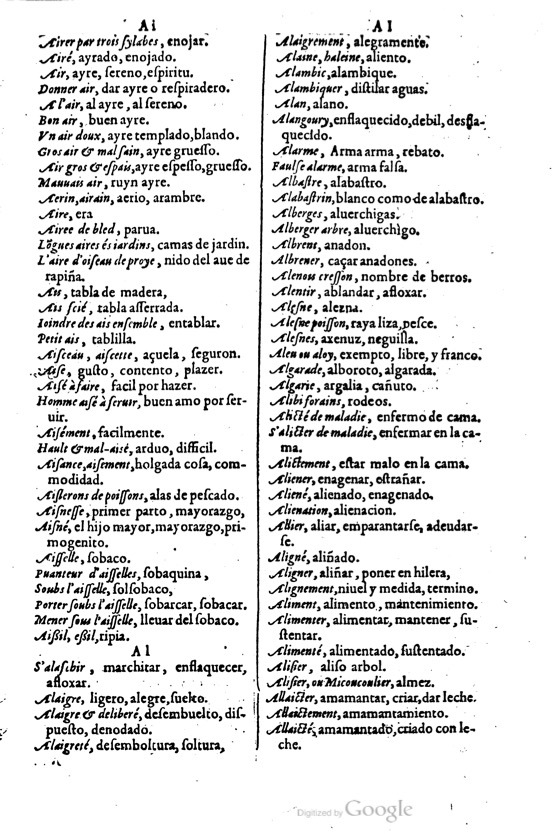 Ai
Airer par trois ſylabes, enojar.
Airé, ayrado, enojado.
Air, ayre, ſereno, eſpiritu.
Donner air, dar ayre o reſpiradero.
A l'air, al ayre, al ſereno.
Bon air, buen ayre.
Vn air doux, ayre templado, blando.
Gros air & mal ſain, ayre grueſſo.
Air gros & eſpais, ayre eſpeſſo, grueſſo.
Mauuais air, ruyn ayre.
Aerin, airain, aerio, arambre.
Aire, era
Airee de bled, parua.
Lõgues aires és iardins, camas de jardin.
L'aire d'oiſeau de proye, nido del aue de
rapiña.
Ais, tabla de madera,
Ais ſcié, tabla aſſerrada.
Ioindre des ais enſemble, entablar.
Petit ais, tablilla.
Aiſceau, aiſcette, açuela, ſeguron.
Aiſe, guſto, contento, plazer.
Aiſé à faire, facil por hazer.
Homme aiſé à ſeruir, buen amo por ſer-
uir.
Aiſément, facilmente.
Hault & mal-aisé, arduo, difficil.
Aiſance, aiſement, holgada coſa, com-
modidad.
Aiſlerons de poiſſons, alas de peſcado.
Aiſneſſe, primer parto, mayorazgo,
Aiſné, el hijo mayor, mayorazgo, pri-
mogenito.
Aiſſelle, ſobaco.
Puanteur d'aiſſelles, ſobaquina,
Soubs l'aiſſelle, ſolſobaco,
Porter ſoubs l'aiſſelle, ſobarcar, ſobacar.
Mener ſous l'aiſſelle, lleuar del ſobaco.
Aißil, eßil, ripia.
A l
S'alaſchir, marchitar, enflaquecer,
afloxar.
Alaigre, ligero, alegre, ſuelto.
Alaigre & deliberé, deſembuelto, diſ-
pueſto, denodado.
Alaigreté, deſemboltura, ſoltura,
A l
Alaigrement, alegramente.
Alaine, haleine, aliento.
Alambic, alambique.
Alambiquer, diſtilar aguas.
Alan, alano.
Alangoury, enflaquecido, debil, desfla-
quecido.
Alarme, Arma arma, rebato.
Faulſe alarme, arma falſa.
Albaſtre, alabaſtro.
Alabaſtrin, blanco como de alabaſtro.
Alberges, aluerchigas.
Alberger arbre, aluerchigo.
Albrent, anadon.
Albrener, caçar anadones.
Alenou creſſon, nombre de berros.
Alentir, ablandar, afloxar.
Aleſne, alezna.
Aleſne poiſſon, raya liza, peſce.
Aleſnes, axenuz, neguilla.
Aleu ou aloy, exempto, libre, y franco.
Algarade, alboroto, algarada.
Algarie, argalia, cañuto.
Alibi forains, rodeos.
Alicté de maladie, enfermo de cama.
S'alicter de maladie, enfermar en la ca-
ma.
Alictement, eſtar malo en la cama.
Aliener, enagenar, eſtrañar.
Aliené, alienado, enagenado.
Alienation, alienacion.
Allier, aliar, emparantarſe, adeudar-
ſe.
Aligné, aliñado.
Aligner, aliñar, poner en hilera,
Alignement, niuel y medida, termino.
Aliment, alimento, mantenimiento.
Alimenter, alimentar, mantener, ſu-
ſtentar.
Alimenté, alimentado, ſuſtentado.
Aliſier, aliſo arbol.
Aliſier, ou Miconcoulier, almez.
Allaicter, amamantar, criar, dar leche.
Allaictement, amamantamiento.
Allaicté, amamantado, criado con le-
che.
Digitized by Google